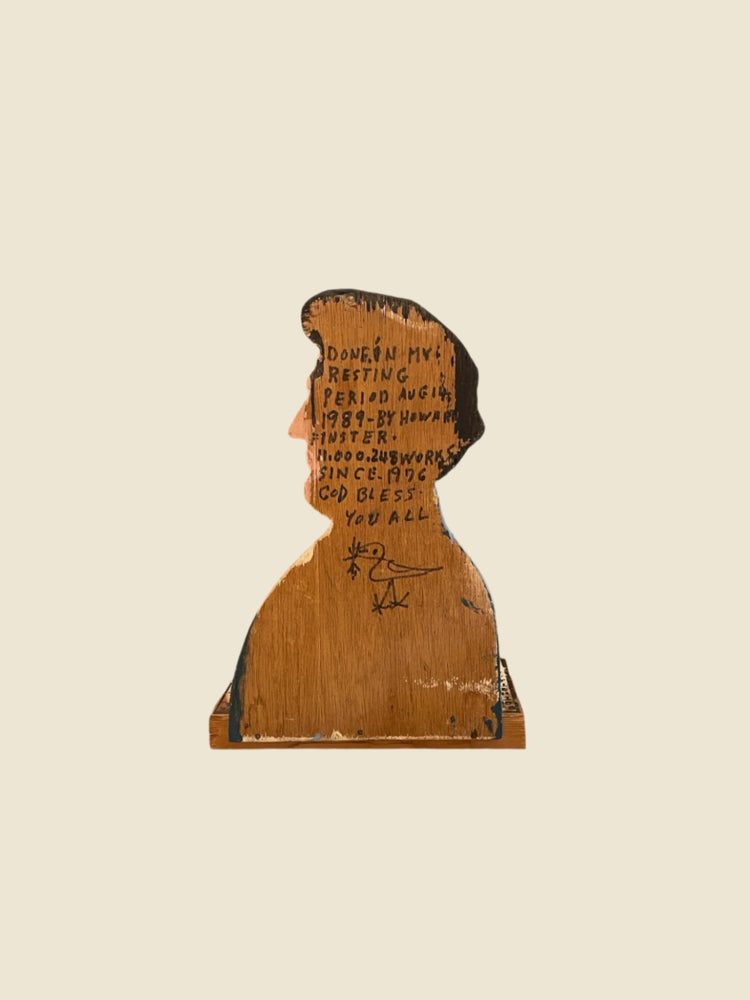 DONE, IN MY
RESTING
PERIOD AUG 14,
1989-BY HOWARD
FINSTER.
11.000.248 WORKS
SINCE. 1976
GOD BLESS.
YOU ALL